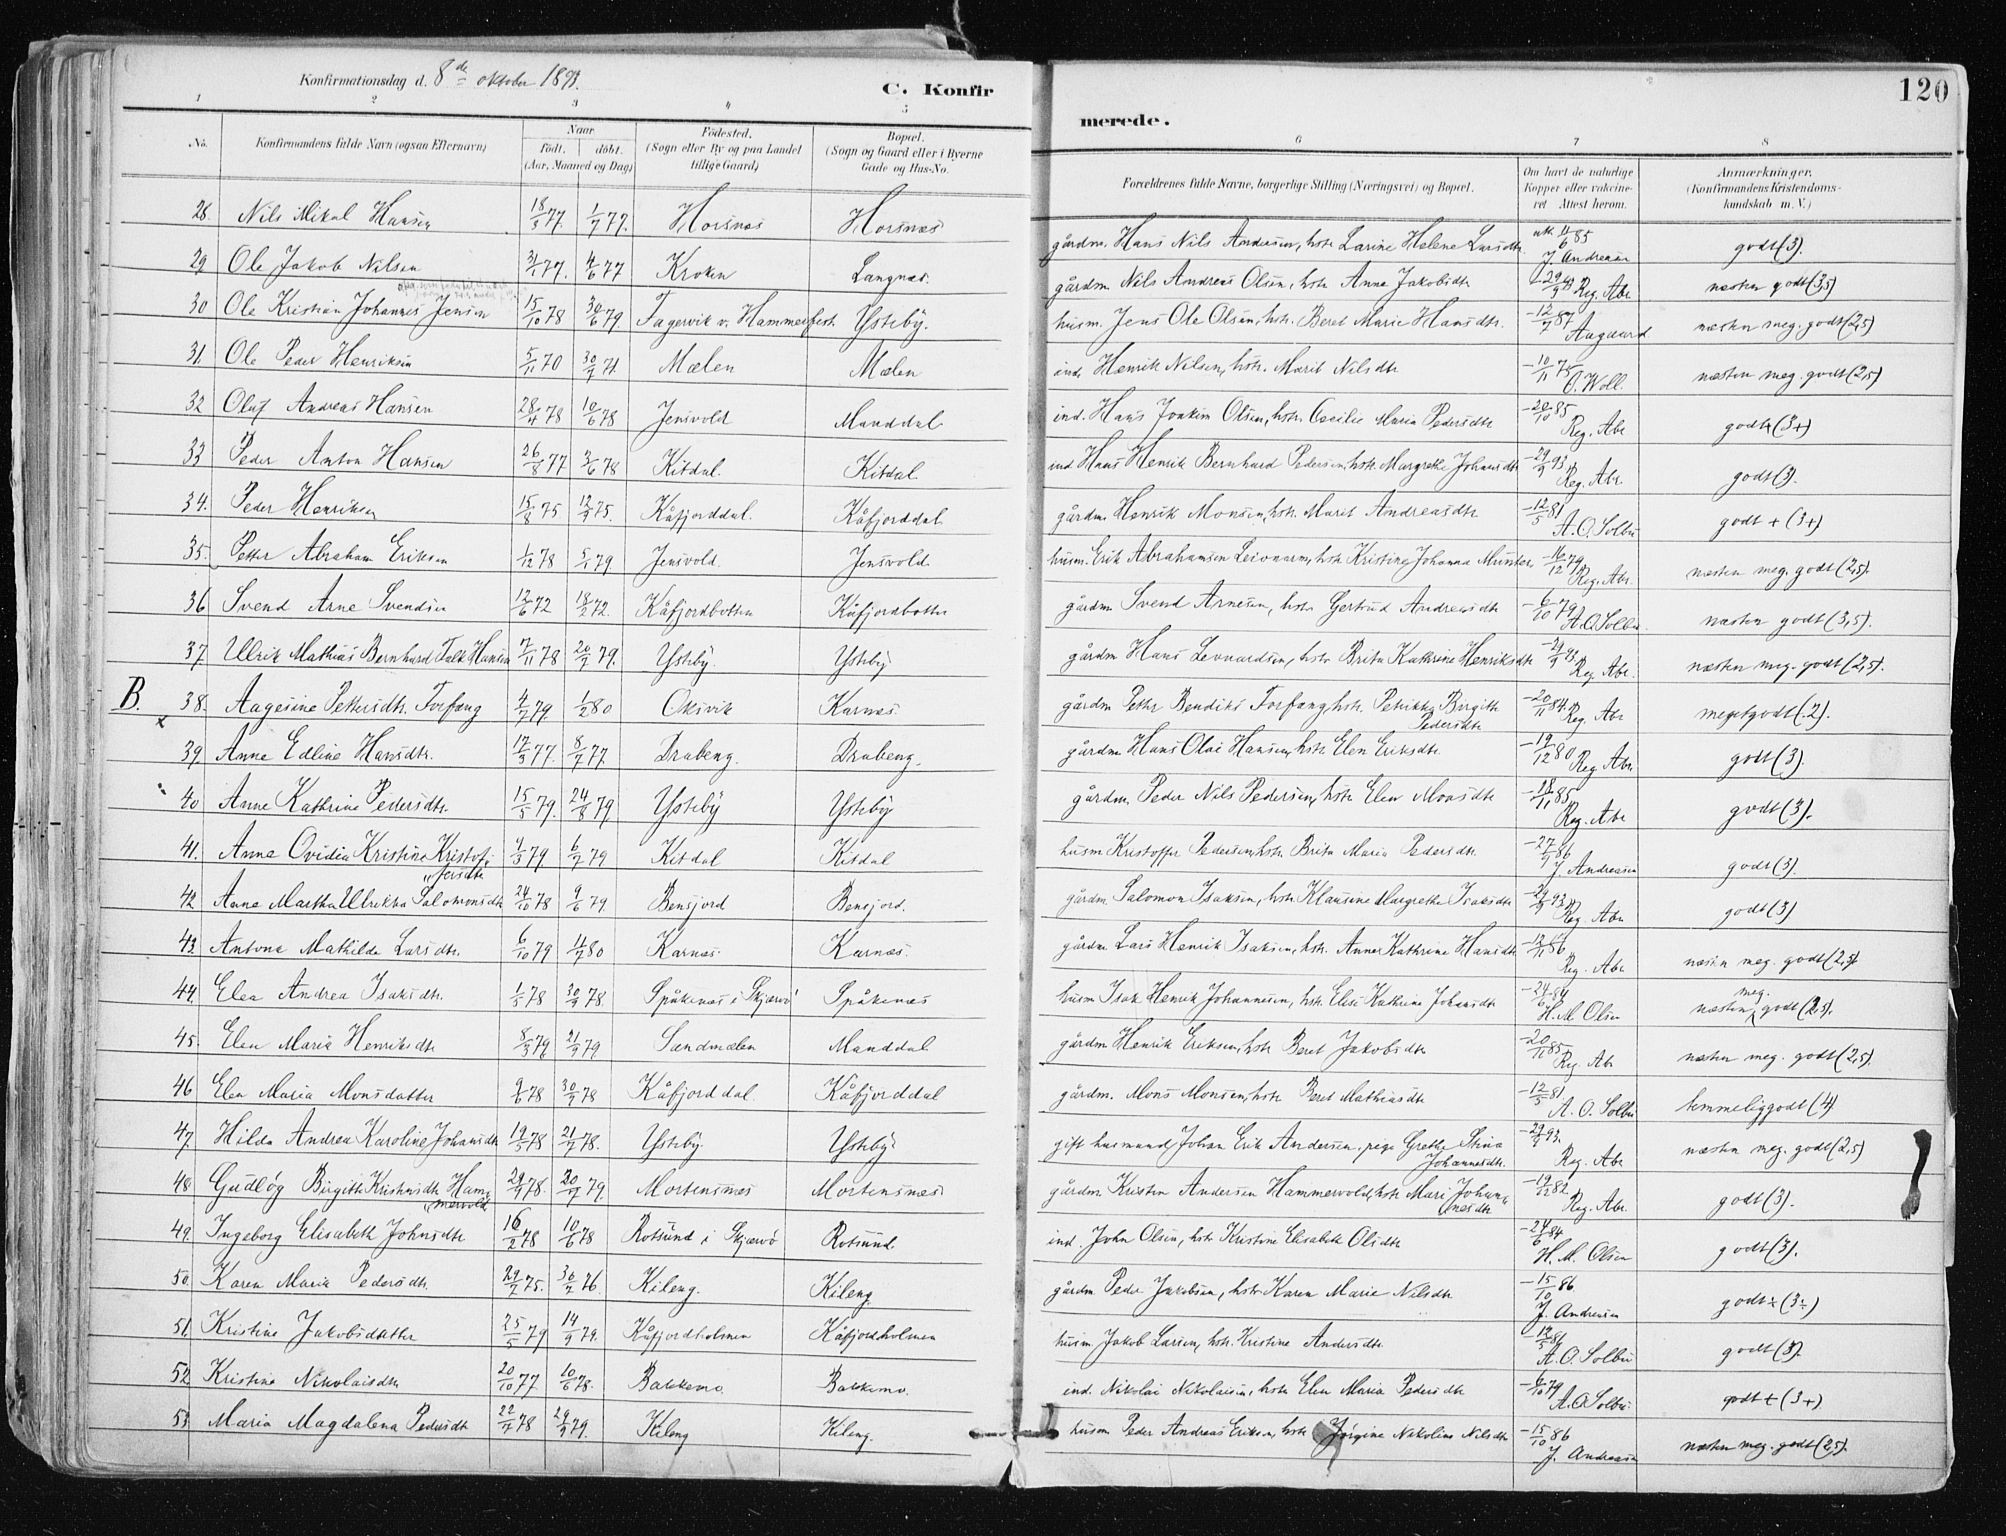 Konfirmationsdag d. 8de oktober 1893.
C. Konfir
merede.
120
1 2 3 " 5 6 7 8
No. Konfirmandens fulde Navn (ogsaa Efternavn) Naar Födt. döbt. (Aar, Maaned og Dag) Födested. (Sogn eller By og paa Landet tillige Gaard) Bopæl. (Sogn og Gaard eller i Byerne Gade og Hus-No. Forældrenes fulde Navne, borgerlige Stilling (Næringsvei) og Bopæl. Om havt de naturlige Kopper eller vakcineret. Attest herom. Anmærkninger. (Konfirmandens Kristendomskundskab m. V.)
28. Nils Mikal Hansen 18/3 77. 1/7 77. Horsnæs Horsnæs gårdm. Hans Nils Andersen, hstr. Larine Helene Larsdtr. atr. 11/6 85 J. Andreasen godt (3).
29 Ole Jakob Nilsen 77. 4/6 77 Kroken Langnæs. gårdm. Nils Andreas Olsen, hstr. Anna Jakobsdtr - 29/9 93 Reg. Abr næsten godt (3,5)
30 Ole Kristian Johannes Jensen 15/10 78 30/6 79 Fagervik v. Hammerfest. Ysteby. husm. Jens Ole Olsen, hstr. Beret Marie Hansdtr. - 12/7 87 Aagaard næsten meg. godt (2,5)
31. Ole Peder Henriksen 5/11 70 30/7 71. Mælen Mælen ind. Henrik Nilsen, hstr. Marit Nilsdtr - 10/11 75 O. Woll. næsten meg. godt (2,5)
32 Oluf Andreas Hansen 28/4 78 10/6 78 Jensvold Manddal ind. Hans Joakim Olsen, hstr. Cecilie Maria Pedersdtr - 20/10 85 Reg. Abr godt + (3+)
33 Peder Anton Hansen 26/8 77 3/6 78 Kitdal. Kitdal ind. Hans Henrik Bernhard Pedersen, hstr. Margrethe Johansdtr - 29/9 93 Reg. Abr. godt (3).
34. Peder Henriksen 15/8 75 12/9 75. Kåfjorddal. Kåfjorddal gårdm. Henrik Monsen, hstr. Marit Andreasdtr - 12/5 81 A. O. Solbu godt + (3+)
35. Petter Abraham Eriksen 1/12 78 5/1 79 Jensvold. Jensvold. husm. Erik Abrahamsen Leivonarm, hstr Kristine Johanna Munster, - 16/12 79 Reg. Abr. næsten meg. godt (2,5).
36 Svend Arne Svendsen 12/6 72 18/2 72. Kåfjordbotten Kåfjordbotten gårdm Svend Arnesen, hstr Gertrud Andreasdtr - 6/10 79 A. O. Solbu. næsten godt (3,5).
37. Ulrik Mathias Bernhard Falk Hansen 7/11 78 20/7 79. Ysteby. Ysteby gårdm Hans Leonardsen, hstr Brita Kathrine Henriksdtr Reg. Abr. næsten meg. godt (2,5).
B. 38. Aagesine Pettersdtr. Torfang 4/7 79. 1/2 80 Oksvik Karnæs. gårdm. Petter Bendiks Torfang, hstr. Petrikke Birgitte Pedersdtr - 20/11 84 Reg. Abr meget godt (2).
39. Anne Edline Hansdtr. 17/3 77. 8/7 77. Drabeng. Drabeng. gårdm Hans Olai Hansen, hstr. Elen Eriksdtr. - 19/12 80 Reg. Abr. godt (3).
40 Anne Kathrine Pedersdtr. 15/5 79. 24/8 79 Ysteby Ysteby gårdm. Peder Nils Pedersen, hstr Elen Monsdtr - 18/11 85 Reg. Abr godt (3).
41. Anna Ovidia Kristine Kristoffersdtr 4/3 79 6/7 79 Kitdal Kitdal husm Kristoffer Pedersen, hstr. Brita Maria Pedersdtr. - 27/9 86 J. Andreasen godt (3).
42 Anne Martha Ulrikka Salomonsdtr 24/10 78 9/6 79. Bensjord Bensjord. gårdm. Salomon Isaksen, hstr Klausine Margrethe Isaksdtr - 29/9 93 Reg. Abr godt (3)
43. Antona Mathilde Larsdtr. 6/10 79 11/7 80 Karnæs. Karnæs. gårdm. Lars Henrik Isaksen, hstr. Anne Kathrine Hansdtr - 12/11 86 Reg. Abr næsten meg. godt (2,5).
44. Elea Andrea Isaksdtr. 1/5 78 30/9 78. Spåkenæs i Skjærvö Spåkenæs husm Isak Henrik Johannesen, hstr Elise Kathrine Johansdtr - 24/6 84 H. M. Olsen næsten meg. godt (2,5).
45. Elen Maria Henriksdtr 8/3 79 21/9 79 Sandmælen Manddal gårdm Henrik Eriksen, hstr Beret Jakobsdtr - 20/11 85 Reg. Abr næsten meg. godt (2,5).
46 Elen Maria Monsdatter 9/6 78 30/9 78 Kåfjorddal. Kåfjorddal gårdm. Mons Monsen, hstr Beret Mathiasdtr - 12/5 81 A. O. Solbu temmelig godt (4)
47. Hilda Andrea Karoline Johansdtr 19/5 78 21/7 78. Ysteby. Ysteby. gift husmand Johan Erik Andersen. pige Grethe Stina Johannesdtr. - 29/9 93. Reg. Abr næsten meg. godt (2,5)
48. Gudlög Birgitte Kristensdtr Hammervold 29/9 78. 20/7 79. Mortensnæs Mortensnæs gårdm. Kristen Andersen Hammervold, hstr. Mari Johannesdtr - 19/12 82 Reg. Abr. godt (3).
49. Ingeborg Elisabeth Johnsdtr 16/2 78 10/6 78 Rotsund i Skjærvö Rotsund. ind. John Olsen, hstr Kristine Elisabeth Olsdtr - 24/6 84 H. M. Olsen godt (3).
50. Karen Marie Pedersdtr. 29/7 75. 30/7 76. Kileng. Kileng. gårdm Peder Jakobsen, hstr Karen Marie Nilsdtr - 15/10 86 J Andreasen godt ÷ (3÷)
51. Kristine Jakobsdatter 25/5 79 14/9 79. Kåfjordholmen Kåfjordholmen husm. Jakob Larsen, hstr. Kristine Andersdtr. 12/5 81 A. O. Solbu godt (3).
52 Kristine Nikolaisdtr 20/10 77 10/6 78. Bakkemo. Bakkemo. ind. Nikolai Nikolaisen, hstr Elen Maria Pedersdtr - 6/10 79 A. O. Solbu. godt + (3+)
53. Maria Magdalena Pedersdtr 22/7 78 29/9 79. Kileng Kileng. husm Peder Andreas Eriksen, hstr Jörgine Nikoline Nilsdtr - 15/10 86 J. Andreasen næsten meg. godt (2,5).